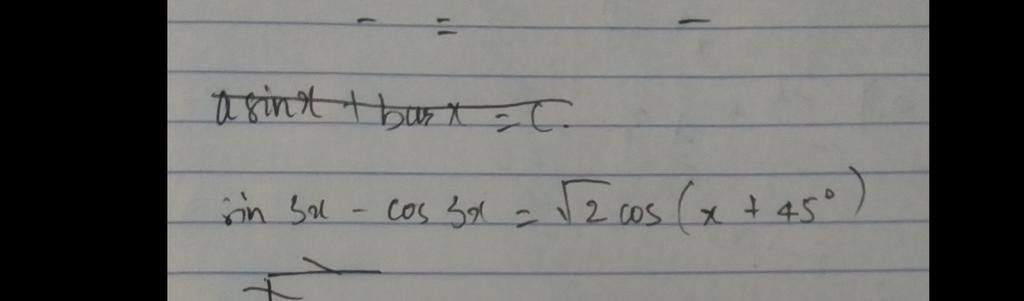 a sin x + b cos x = c.
sin 3x - cos 3x = √2 cos (x + 45°)